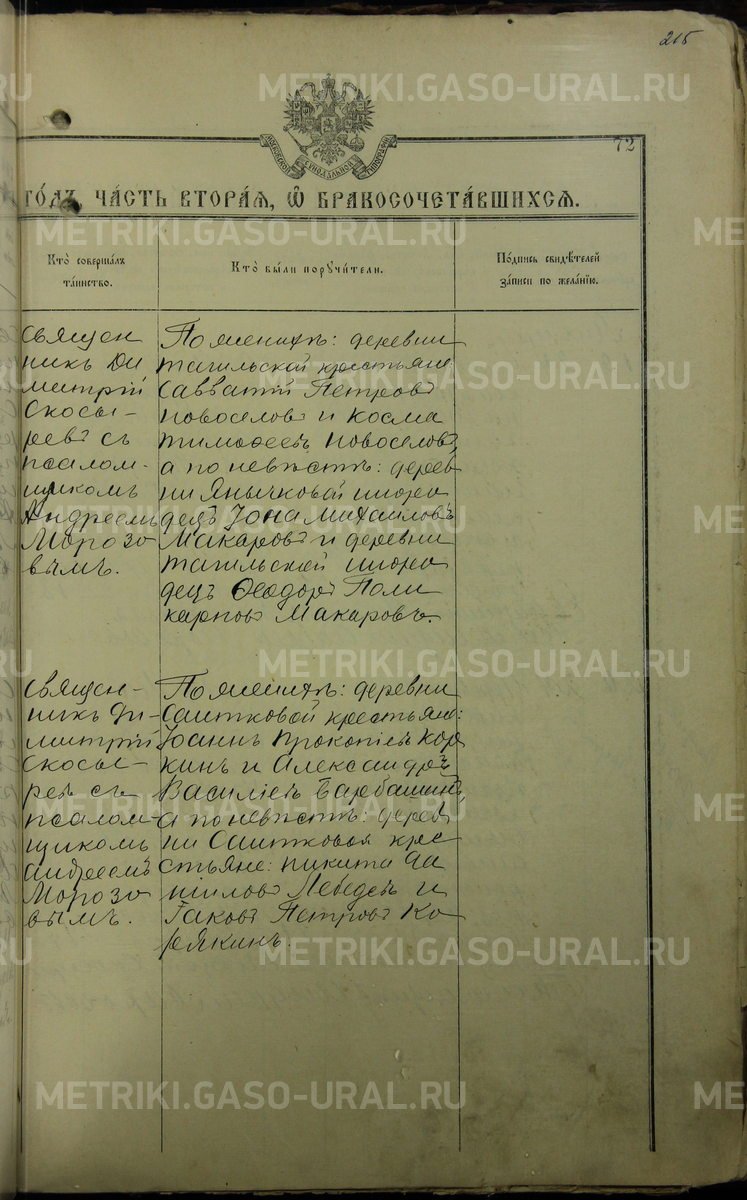 215
METRIKI.GASO-URAL.RU
МОСКОВСКОЙ СѴНОДАЛЬНОЙ ТИПОГРАФІИ
72
ГО́ДЪ ЧА́СТЬ ВТОРА́Ѧ, Ѽ БРАКОСОЧЕТА́ВШИХСѦ.
Кто̀ соверша́лъ
та́инство.
Кто̀ бы́ли порꙋчи́тели.
По́дпись свидѣ́телей
за́писи по жела́нїю.
Священ
никъ Ди
митрій
Скосы-
ревъ съ
псалом-
щикомъ
Андреемъ
Морозо
вымъ.
По женихѣ: деревни
Тагильской крестьяне:
Савватій Петровъ
Новоселовъ и Косма
Тимофеевъ Новоселовъ,
а по невѣстѣ: дерев
ни Янычковой инора
децъ Іона Михаиловъ
Макаровъ и деревни
Тагильской иноро
децъ Ѳеодоръ Поли
карповъ Макаровъ.
Священ-
никъ Ди-
митрій
Скосы-
ревъ съ
псалом-
щикомъ
Андреемъ
Морозо
вымъ.
По женихѣ: деревни
Саитковой крестьяне:
Іоаннъ Прокопіевъ Коря
кинъ и Александръ
Василіевъ Барбашинъ,
а по невѣстѣ: дерев
ни Саитковая кре
стьяне: Никита Да
ніиловъ Лебедевъ и
Іаковъ Петровъ Ко
рякинъ.